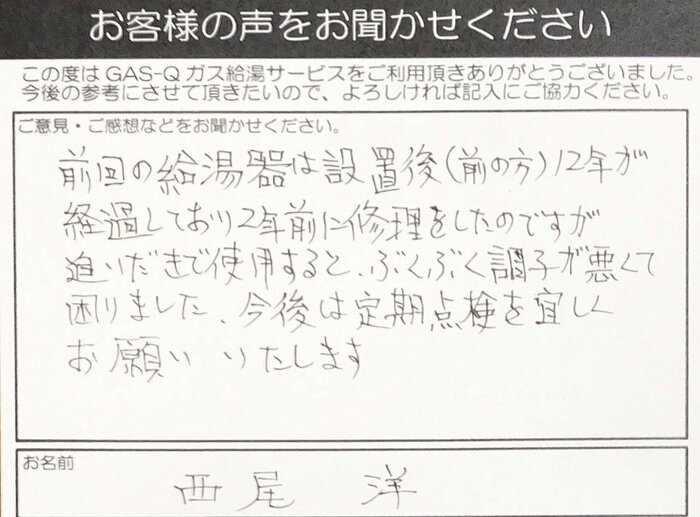 お客様の声をお聞かせください
この度は GAS-Q ガス給湯サービスをご利用頂きありがとうございました。
今後の参考にさせて頂きたいので、よろしければ記入にご協力ください。
ご意見・ご感想などをお聞かせください。
前回の給湯器は設置後(前の方)12年が
経過しており2年前に修理をしたのですが
追いだきで使用すると、ぶくぶく調子が悪くて
困りました、今後は定期点検を宜しく
お願いいたします
お名前
西尾 洋